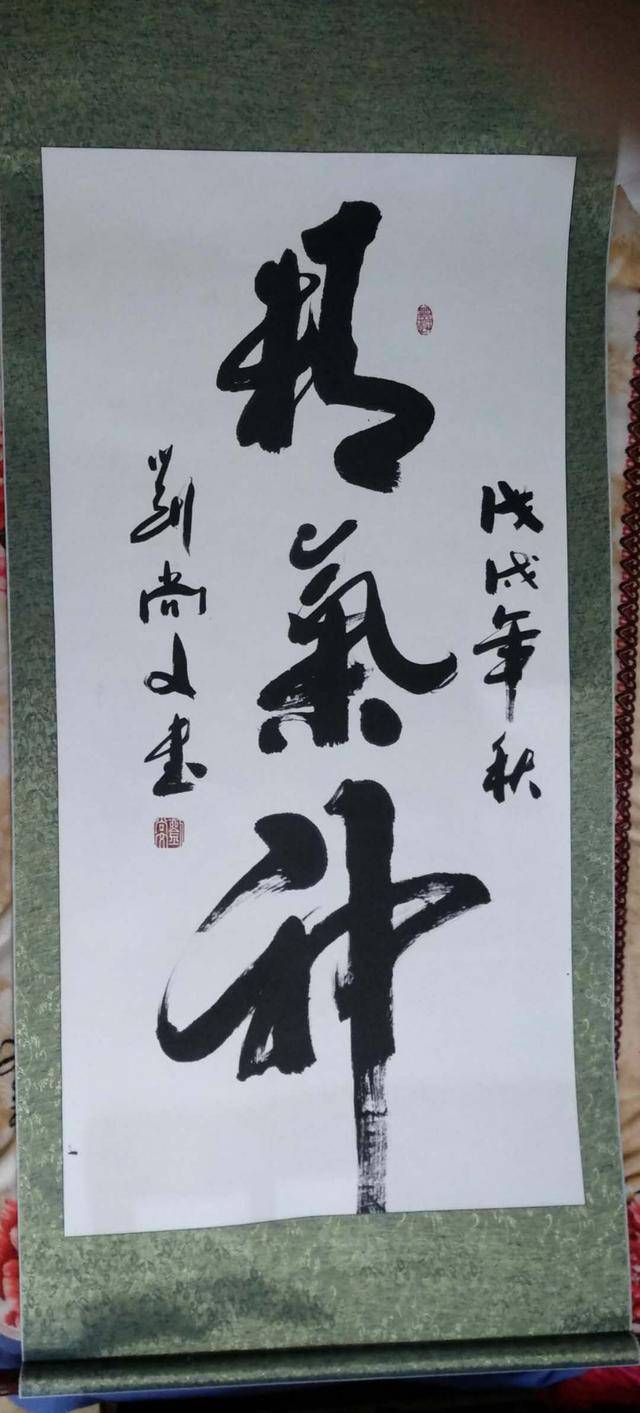 戊戌年秋
精氣神
劉尚文書